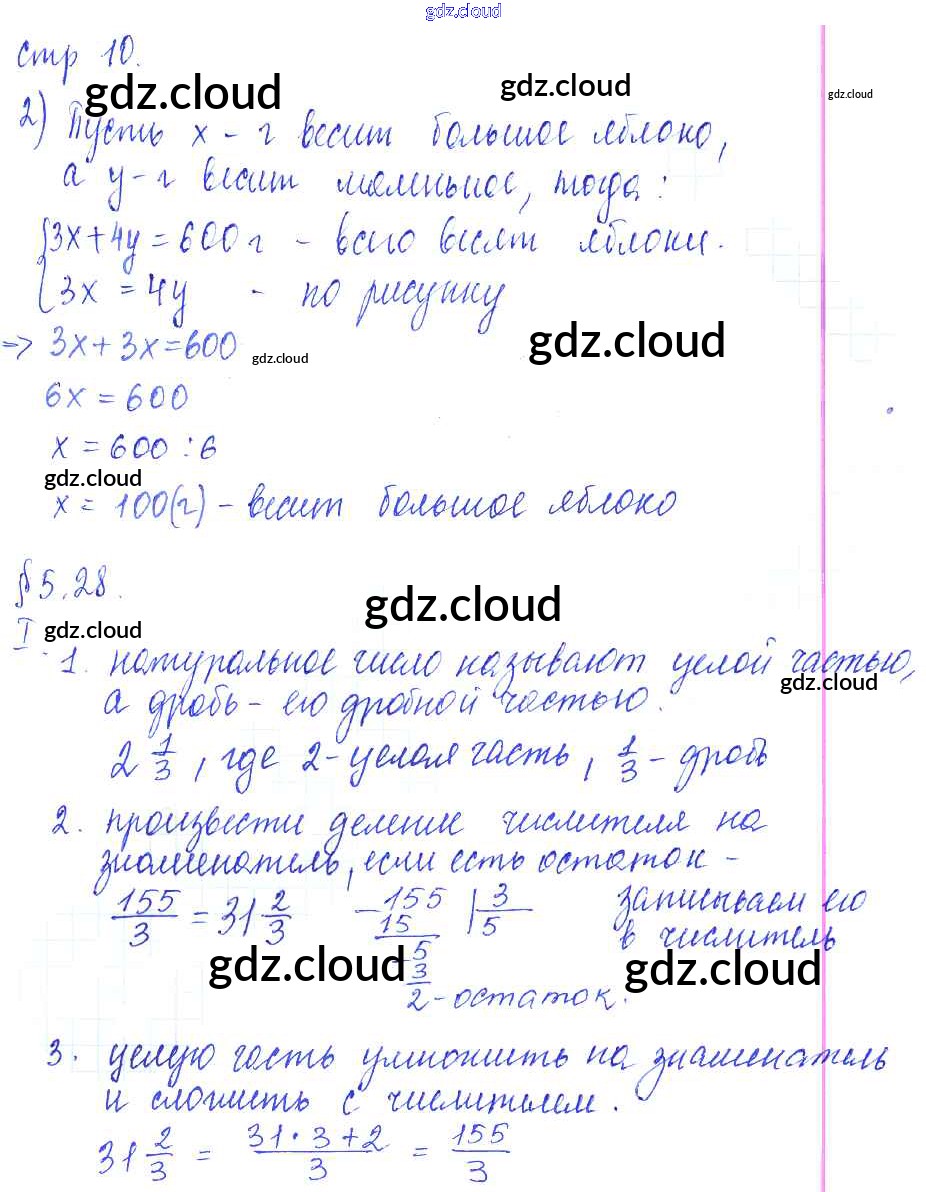 gdz.cloud
стр 10.
gdz.cloud gdz.cloud gdz.cloud
2) Пусть x - г весит большое яблоко,
а y - г весит маленькое, тогда:
{3x + 4y = 600 г - всего весят яблоки.
3x = 4y - по рисунку
gdz.cloud
=> 3x + 3x = 600 gdz.cloud
6x = 600
x = 600 : 6
gdz.cloud
x = 100(г) - весит большое яблоко
§ 5.28.
gdz.cloud
I gdz.cloud
1. натуральное число называют целой частью,
gdz.cloud
а дробь - его дробной частью.
2 1/3, где 2 - целая часть, 1/3 - дробь
2. произвести деление числителя на
знаменатель, если есть остаток -
155/3 = 31 2/3 - 155 | 3 записываем его
15 5 в числитель
- 5
gdz.cloud 3 gdz.cloud
2 - остаток.
3. целую часть умножить на знаменатель
и сложить с числителем.
31 2/3 = 31 · 3 + 2/3 = 155/3